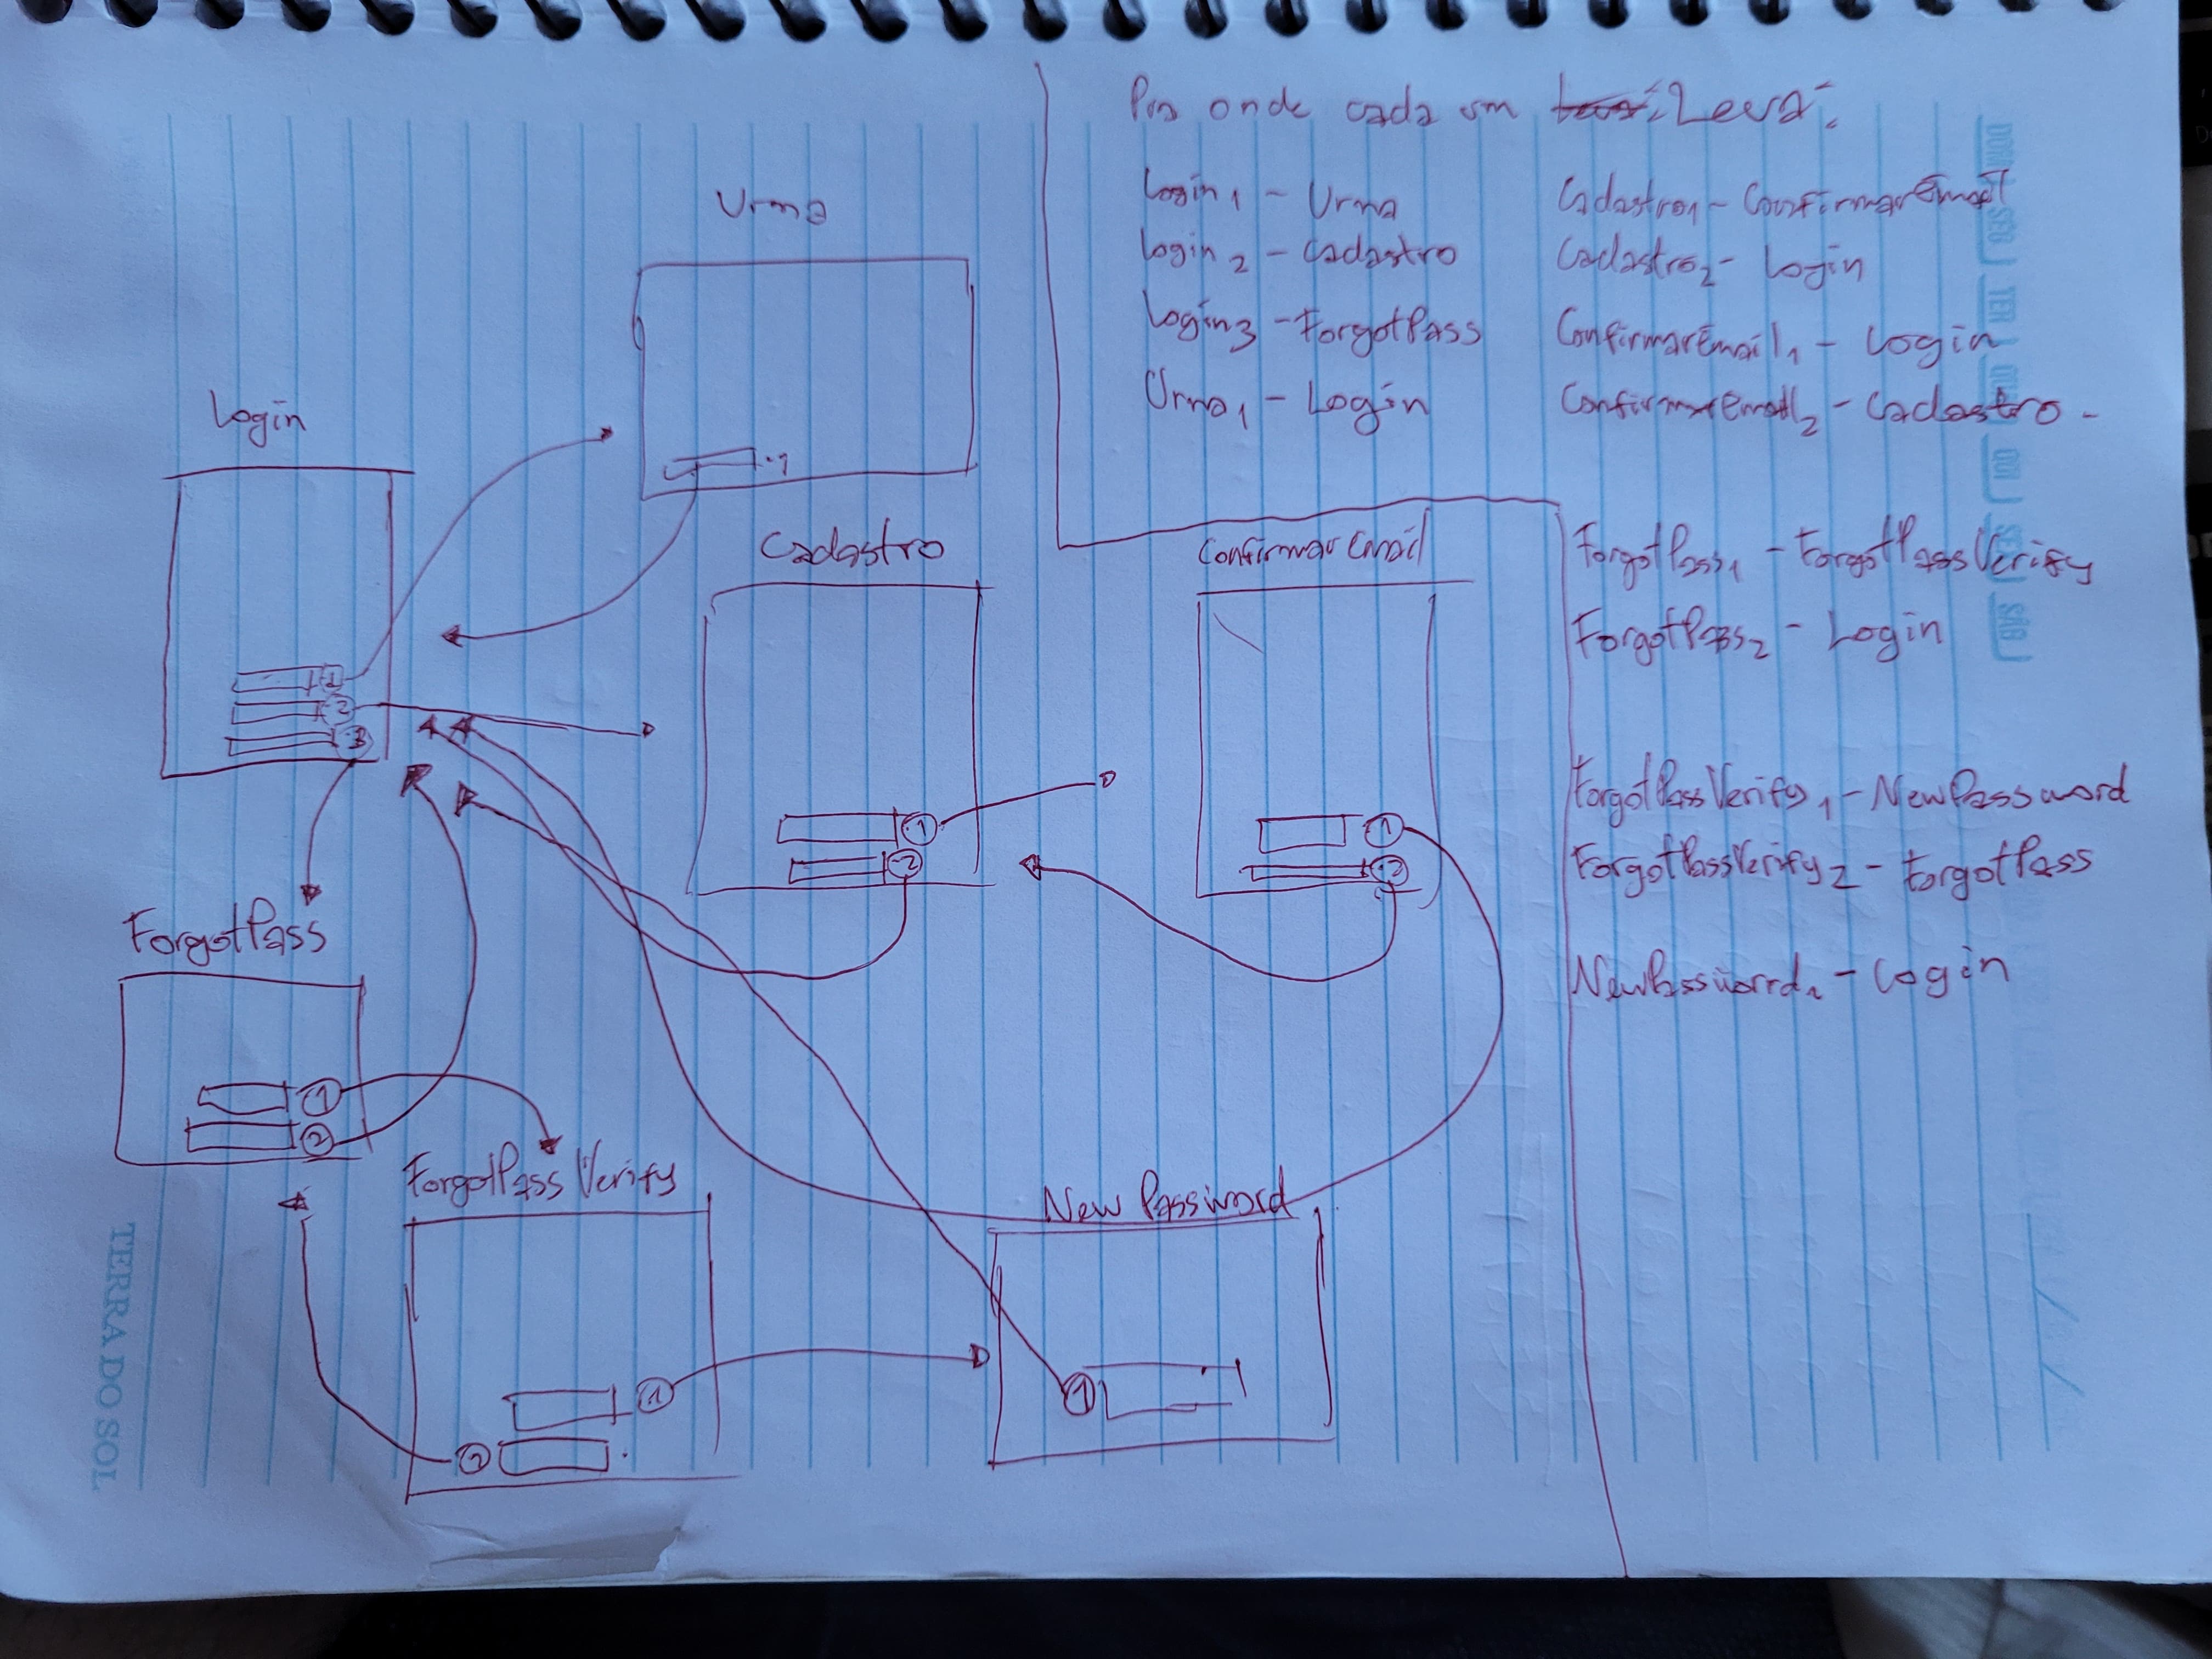 Pra onde cada um Leva:
Login1 - Urna
Login2 - Cadastro
Login3 - ForgotPass
Urna1 - Login
Cadastro1 - ConfirmarEmail
Cadastro2 - Login
ConfirmarEmail1 - Login
ConfirmarEmail2 - Cadastro -
ForgotPass1 - ForgotPassVerify
ForgotPass2 - Login
ForgotPassVerify1 - NewPassword
ForgotPassVerify2 - ForgotPass
NewPassword1 - Login
Urna
1
Login
1
2
3
Cadastro
1
2
Confirmar Email
1
2
ForgotPass
1
2
ForgotPass Verify
1
2
New Password
1
TERRA DO SOL
DOM SEG TER QUA QUI SEX SÁB